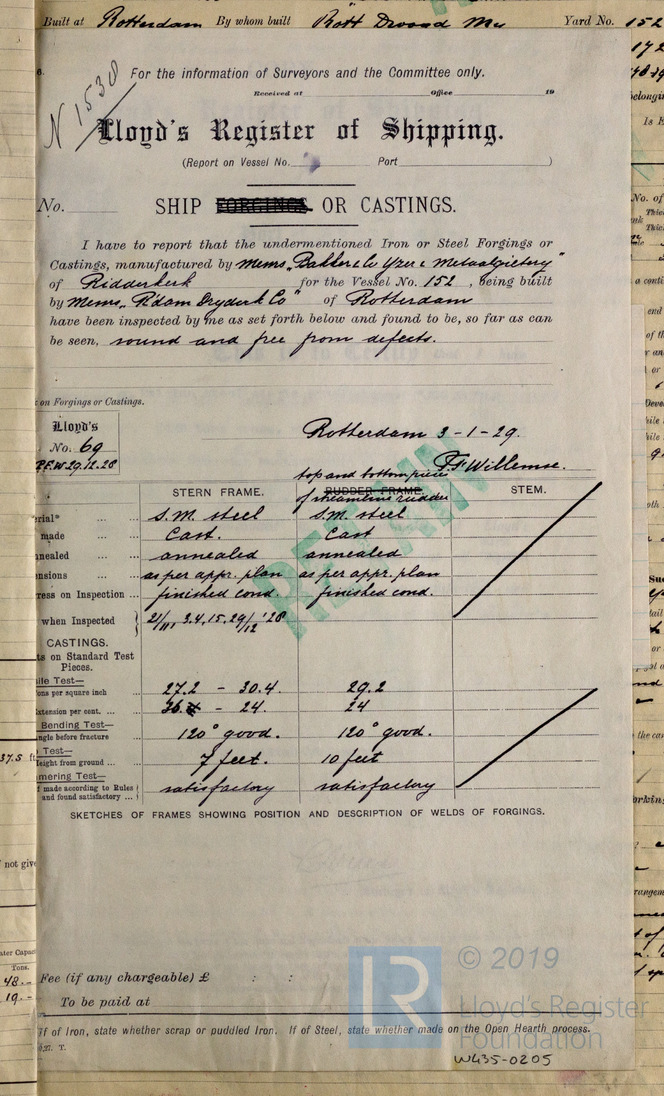 Built at Rotterdam By whom built Rott Droood Mij Yard No. 152
N 1530
For the information of Surveyors and the Committee only.
Received at Office 19
Lloyd's Register of Shipping.
(Report on Vessel No. Port )
No. SHIP FORGINGS OR CASTINGS.
I have to report that the undermentioned Iron or Steel Forgings or
Castings, manufactured by Messrs "Bakker & Co Yzer & Metaalgietery"
of Ridderkerk for the Vessel No. 152, being built
by Messrs "R'dam Drydock Co" of Rotterdam
have been inspected by me as set forth below and found to be, so far as can
be seen, sound and free from defects.
on Forgings or Castings.
Lloyd's
No. 69
F.W 29.12.28
Rotterdam 3-1-29.
F Willemse.
top and bottom piece
STERN FRAME. RUDDER FRAME. STEM.
of streamline rudder
erial* S.M. steel S.M. steel
made Cast. Cast
nealed annealed annealed
nsions as per appr. plan as per appr. plan
ress on Inspection finished cond. finished cond.
when Inspected 21/11, 3.4,15,29/12 '28
CASTINGS.
ts on Standard Test
Pieces.
ile Test—
ons per square inch 27.2 - 30.4. 29.2
Extension per cent. 36 - 24. 24
Bending Test—
ngle before fracture 120° good. 120° good.
Test—
Height from ground 7 feet. 10 feet
mering Test—
made according to Rules satisfactory satisfactory
and found satisfactory
REWAN
SKETCHES OF FRAMES SHOWING POSITION AND DESCRIPTION OF WELDS OF FORGINGS.
37.5 ft
not give
ater Capac
Tons.
48.-
19.-
Fee (if any chargeable) £ : :
To be paid at
If of Iron, state whether scrap or puddled Iron. If of Steel, state whether made on the Open Hearth process.
© 2019
Lloyd's Register
Foundation
W435-0205